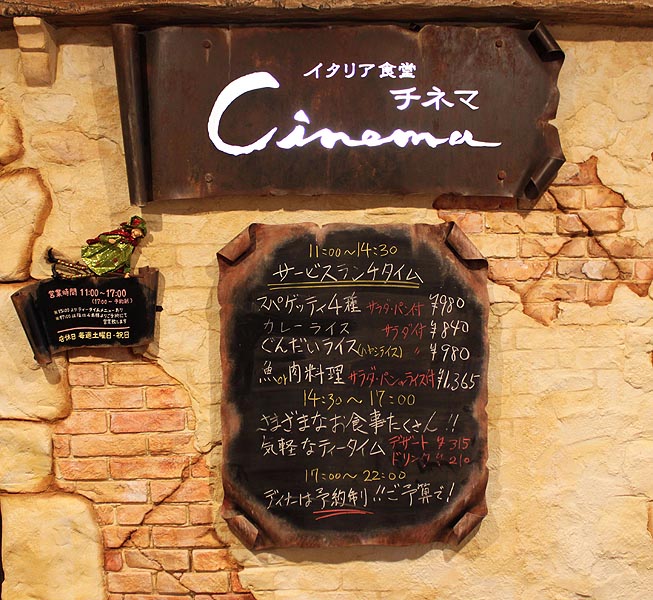 イタリア食堂
チネマ
Cinema
営業時間 11:00～17:00
(17:00～ 予約制)
店休日 毎週土曜日・祝日
11:00～14:30
サービスランチタイム
スパゲッティ4種 サラダ・パン付 ¥980
カレーライス サラダ付 ¥840
ぐんだいライス(ハヤシライス) 〃 ¥980
魚or肉料理 サラダ・パンorライス付 ¥1,365
14:30～17:00
さまざまなお食事たくさん!!
気軽なティータイム デザート ¥315
ドリンク ¥210
17:00～22:00
ディナーは予約制!!ご予算で!